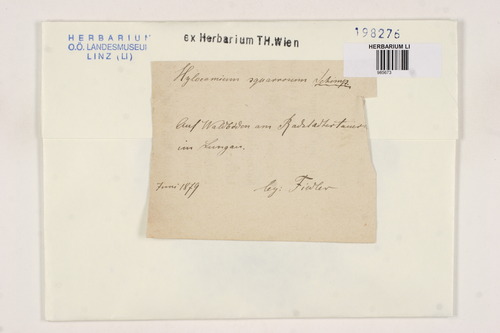 HERBARIUM
O.Ö. LANDESMUSEUM
LINZ (LI)
ex Herbarium TH.Wien
198276
HERBARIUM LI
Hylocomium squarrosum Schimp.
Auf Waldböden am Radstädtertauern
im Lungau.
Juni 1879 leg: Fiedler